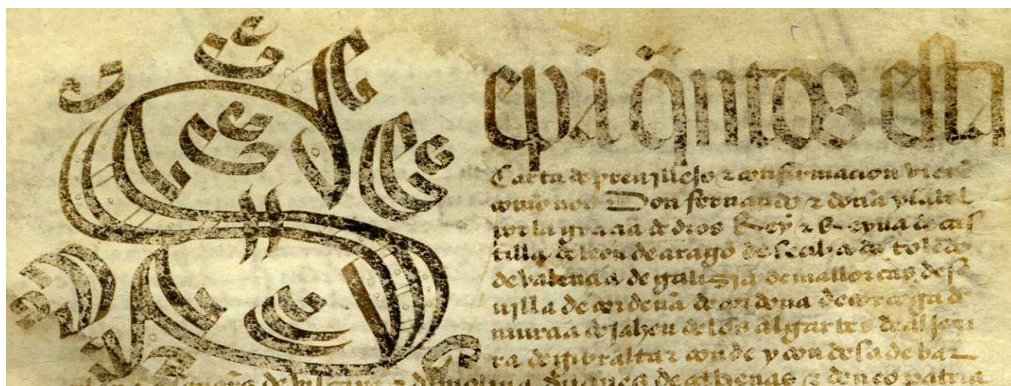 Sepā q̄ntos esta
Carta de preuillejo z confirmacion vierē
como nos Don fernando z doña ysabel
por la gracia de dios Rey z Reyna de cas
tilla de leon de aragō de seçilia de toledo
de valencia de galizia de mallorcas de se
uilla de cerdena de cordoua de corçega de
murcia de jahen de los algarbes de aljezi
ra de gibraltar conde y condesa de bar
z de molina duques de athenas z de neopatria